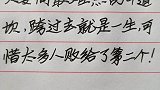 坎，跨过去就是一生，可
惜大多人败给了第二个！